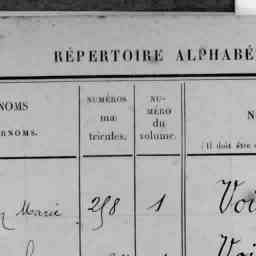 RÉPERTOIRE ALPHABÉ
NOMS
RNOMS.
NUMÉROS
ma
tricules.
NU-
MÉRO
du
volume.
N
(Il doit être
Marie 258 1 Voi
Voi